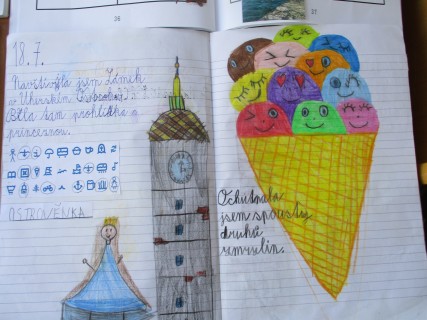 36
37
18.7.
Navštívila jsem zámek
v Uherském
Byla tam prohlídka s
princeznou.
OSTROVĚNKA
Ochutnala
jsem spousty
druhů
zmrzlin.